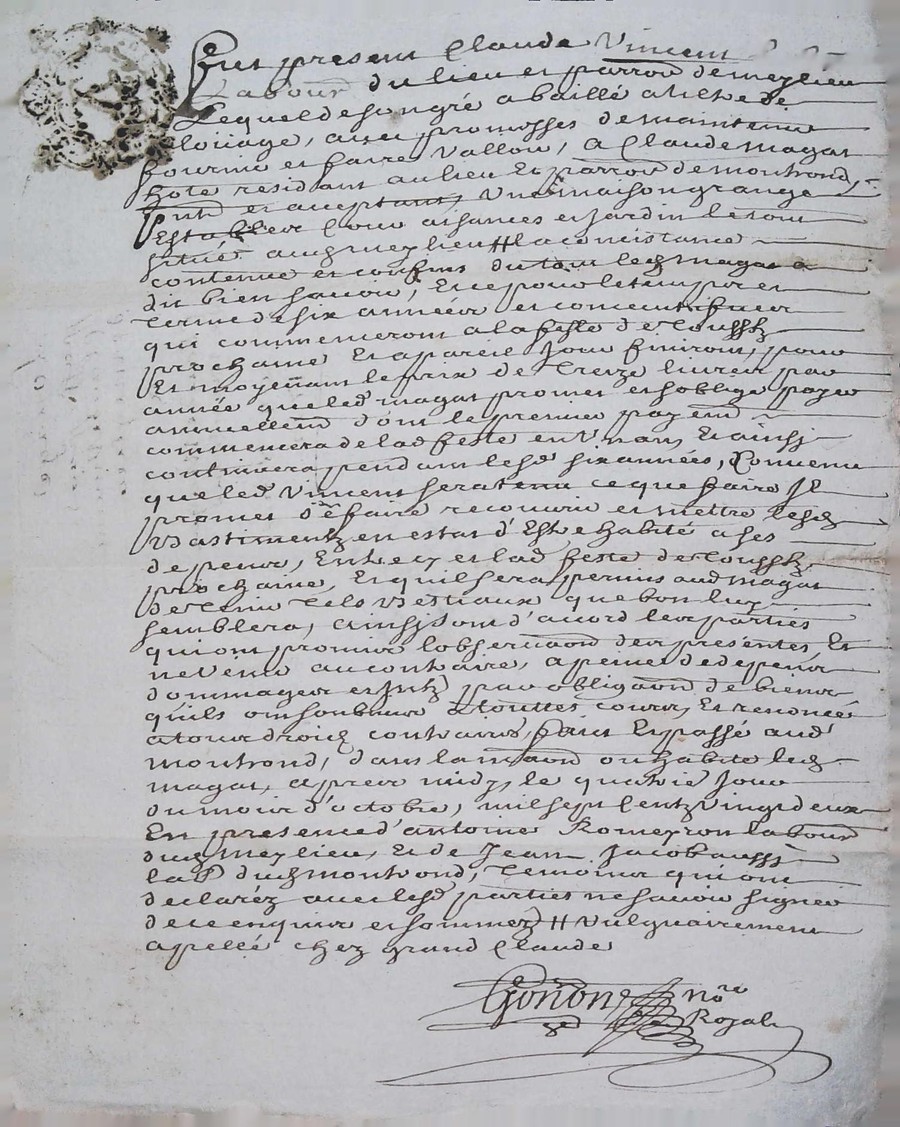 Fut present Claude Vincent
Labour du lieu et parroe de meylieu
Lequel de son gré a baillé a tiltre de
loüage, avec promesses de maintenir
fournir et faire valloir, a Claude magat
hote residant au lieu et parroe de montrond,
pnt et acceptant, Une maison grange
Estableer Cour aisances et Jardin le tout
situé aud meylieu # la consistance
contenue et confins du tout led magat a
dit bien savoir, Et ce pour le temps et
terme de six années et consecutifves
qui commenceront a la feste de toussts
prochaine Et a pareil Jour finiront, pour
Et moyenant le prix de treize livres par
année que led magat promet et soblige payer
annuellemt dont le premier payemt
commencera de lad feste en Un an, Et ainsj
continuera pendant lesd six années, Convenu
que led Vincent sera tenu ce que faire Jl
promet de faire recouvrir et mettre lesd
Bastimentz en estat d'Estre habité a ses
depens, Entre cy et lad feste de toussts
prochaine, Et quil sera permis aud magat
de tenir tels Bestiaux que bon luy
semblera, Ainsj sont d'accord les parties
qui ont promis lobservaon des presentes, Et
ne venir au contraire, a peine de depens
dommages et Jntz par obligaon de biens
quils ont soubmis a touttes cours, Et renoncé
a tous droits contraires, fait Et passé aud
montrond, dans la maison ou habite led
magat, apres midy, le quatrie Jour
du mois d'octobre, mil sept Centz vingt deux
En presence d'antoine Romeyron labour
dud meylieu, Et de Jean Jacob aussj
lab dud montrond, temoins qui ont
declaréz avec lesd parties ne savoir signer
de ce enquis et sommez # vulguairement
apellé chez grand Claude
Gonon
nore
Royal